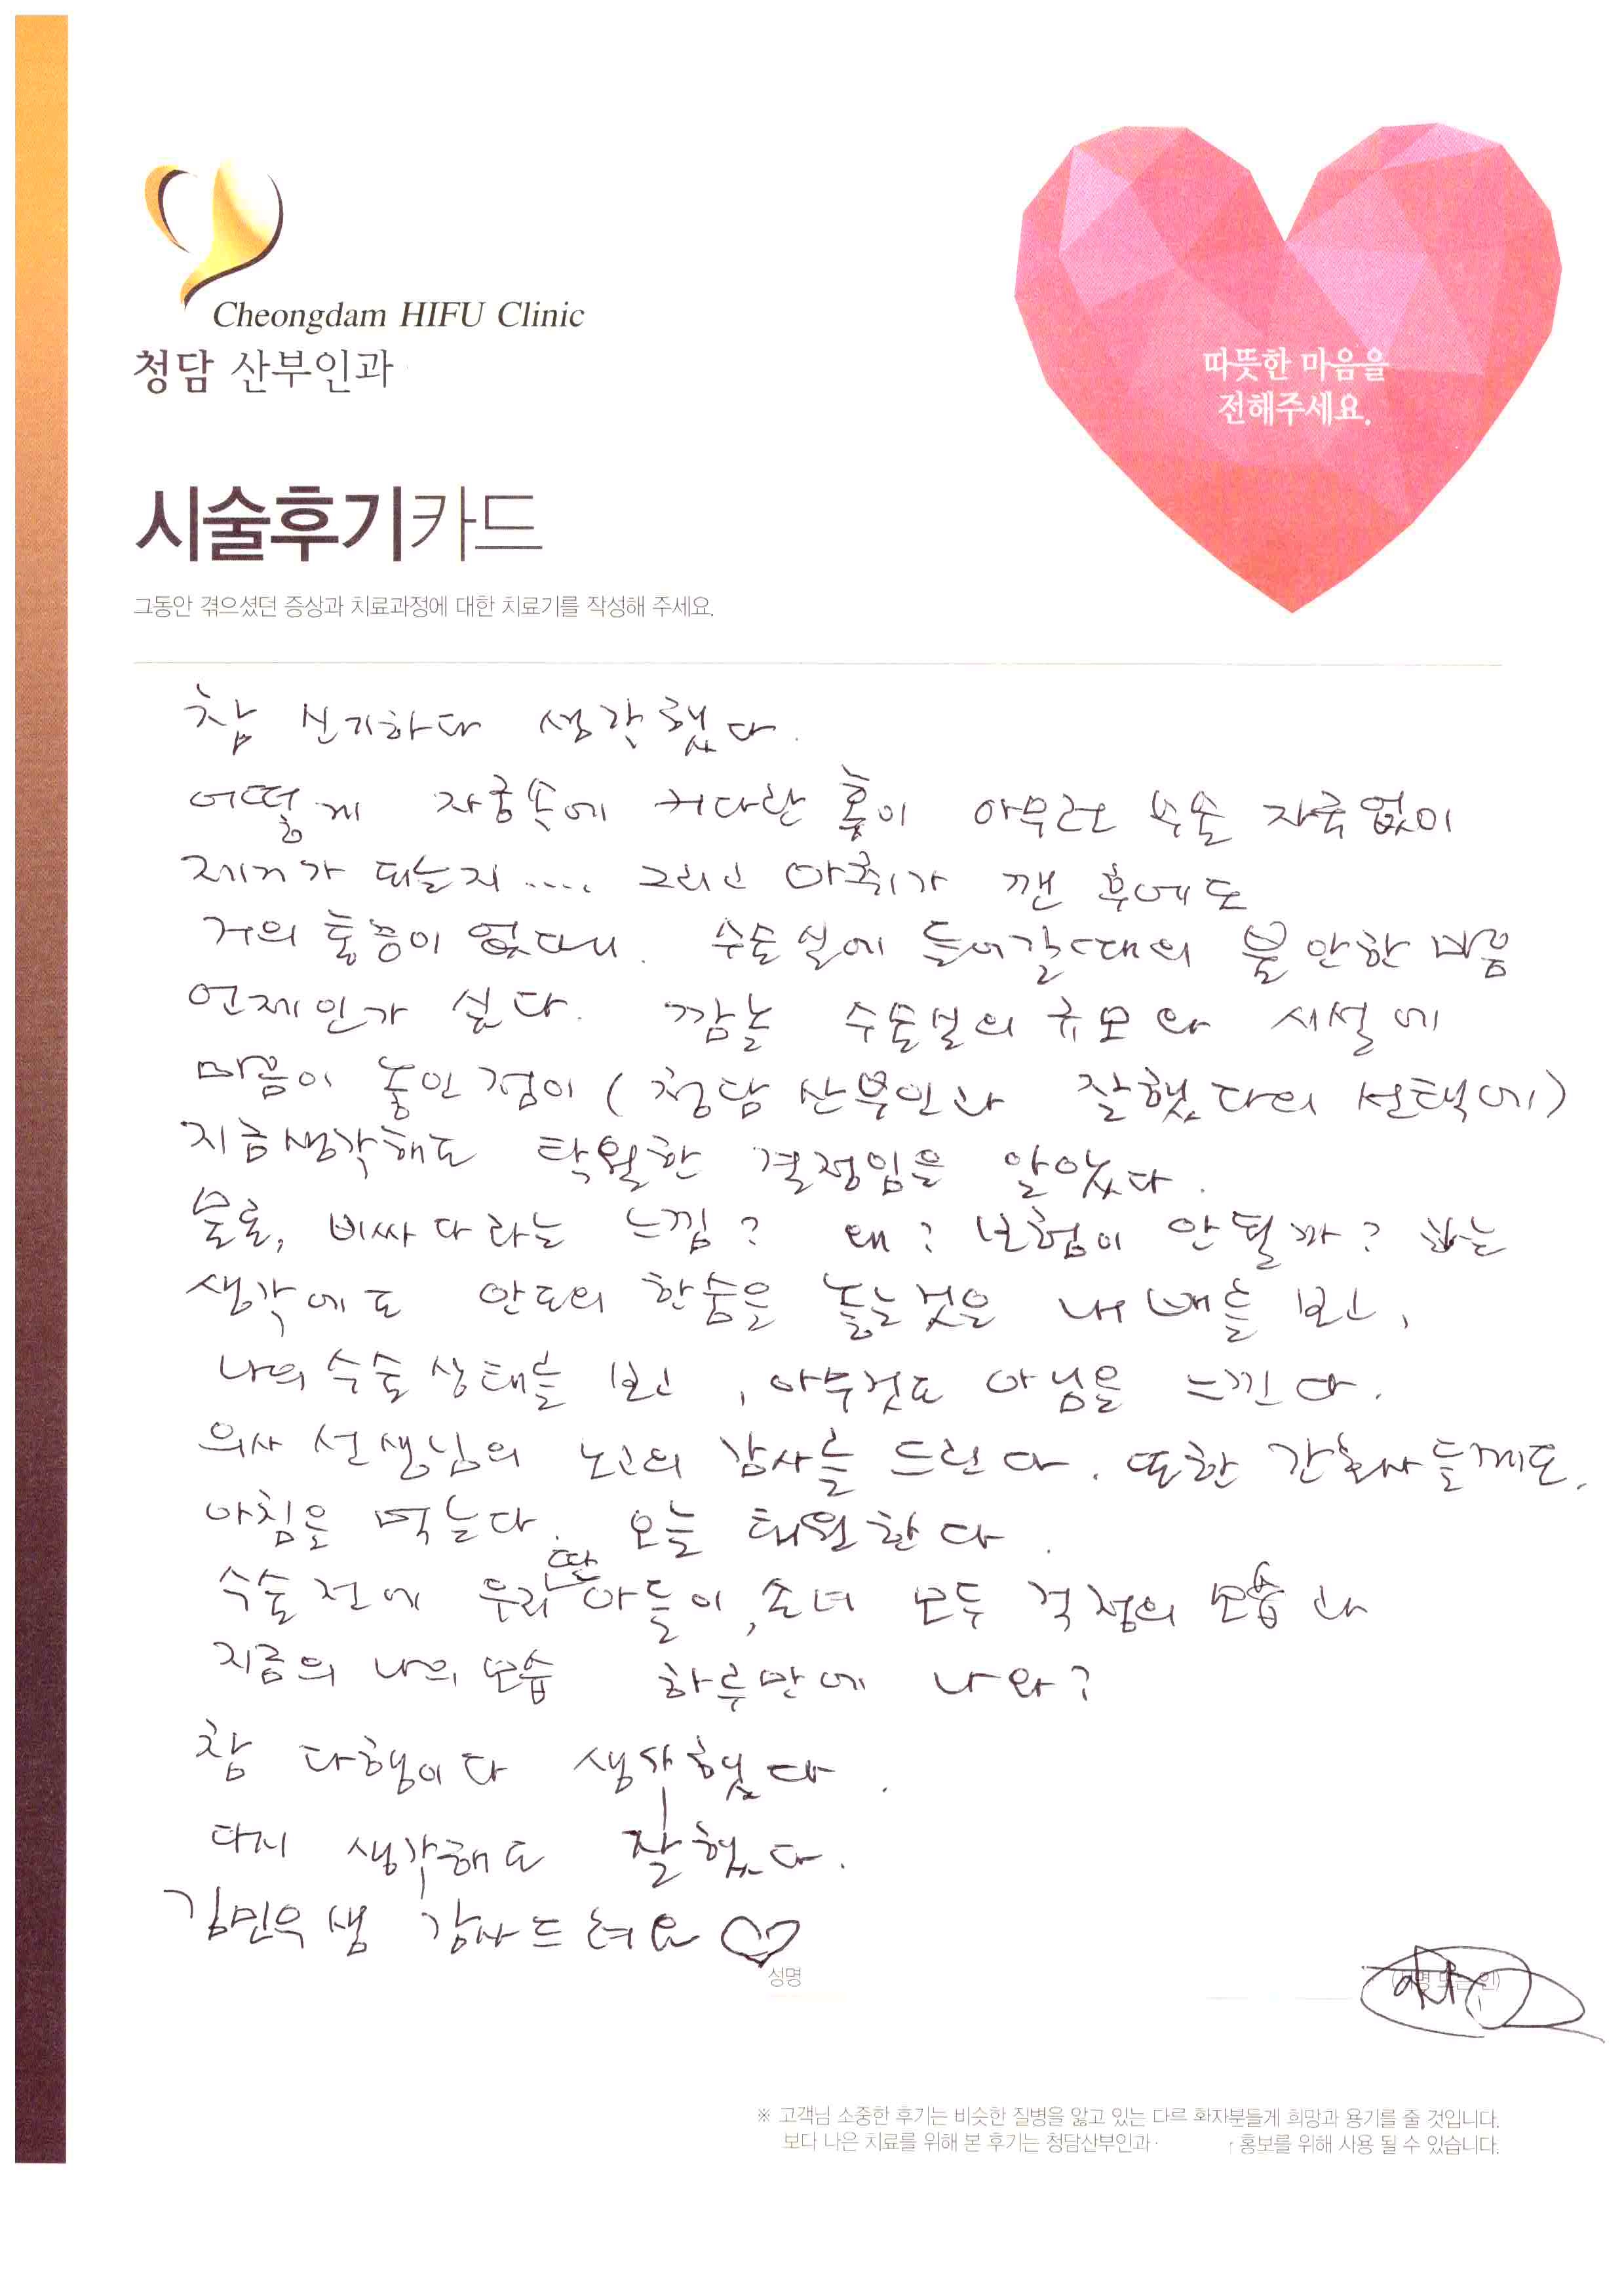 Cheongdam HIFU Clinic
청담 산부인과
따뜻한 마음을
전해주세요.
시술후기카드
그동안 겪으셨던 증상과 치료과정에 대한 치료기를 작성해 주세요.
참 신기하다 생각했다.
어떻게 자궁속에 커다란 혹이 아무런 수술 자국없이
제거가 되는지 .... 그리고 마취가 깬 후에도
거의 통증이 없다니. 수술실에 들어갈때의 불안한 마음
언제인가 싶다. 깜놀 수술실의 규모와 시설에
마음이 놓인점이 (청담 산부인과 잘했다의 선택에)
지금생각해도 탁월한 결정임을 알았다.
물론, 비싸다라는 느낌? 왜? 보험이 안될까? 하는
생각에도 안도의 한숨을 놓는것은 내 배를 보고,
나의 수술 상태를 보고, 아무것도 아님을 느낀다.
의사 선생님의 노고의 감사를 드린다. 또한 간호사들께도.
아침을 먹는다. 오늘 퇴원한다.
수술 전에 우리 딸 아들이, 손녀 모두 걱정의 모습과
지금의 나의 모습 하루만에 나와?
참 다행이다 생각했다.
다시 생각해도 잘했다.
김민우샘 감사드려요 ♡
성명
(서명 또는 인)
※ 고객님 소중한 후기는 비슷한 질병을 앓고 있는 다르 화자분들게 희망과 용기를 줄 것입니다.
보다 나은 치료를 위해 본 후기는 청담산부인과 홍보를 위해 사용 될 수 있습니다.